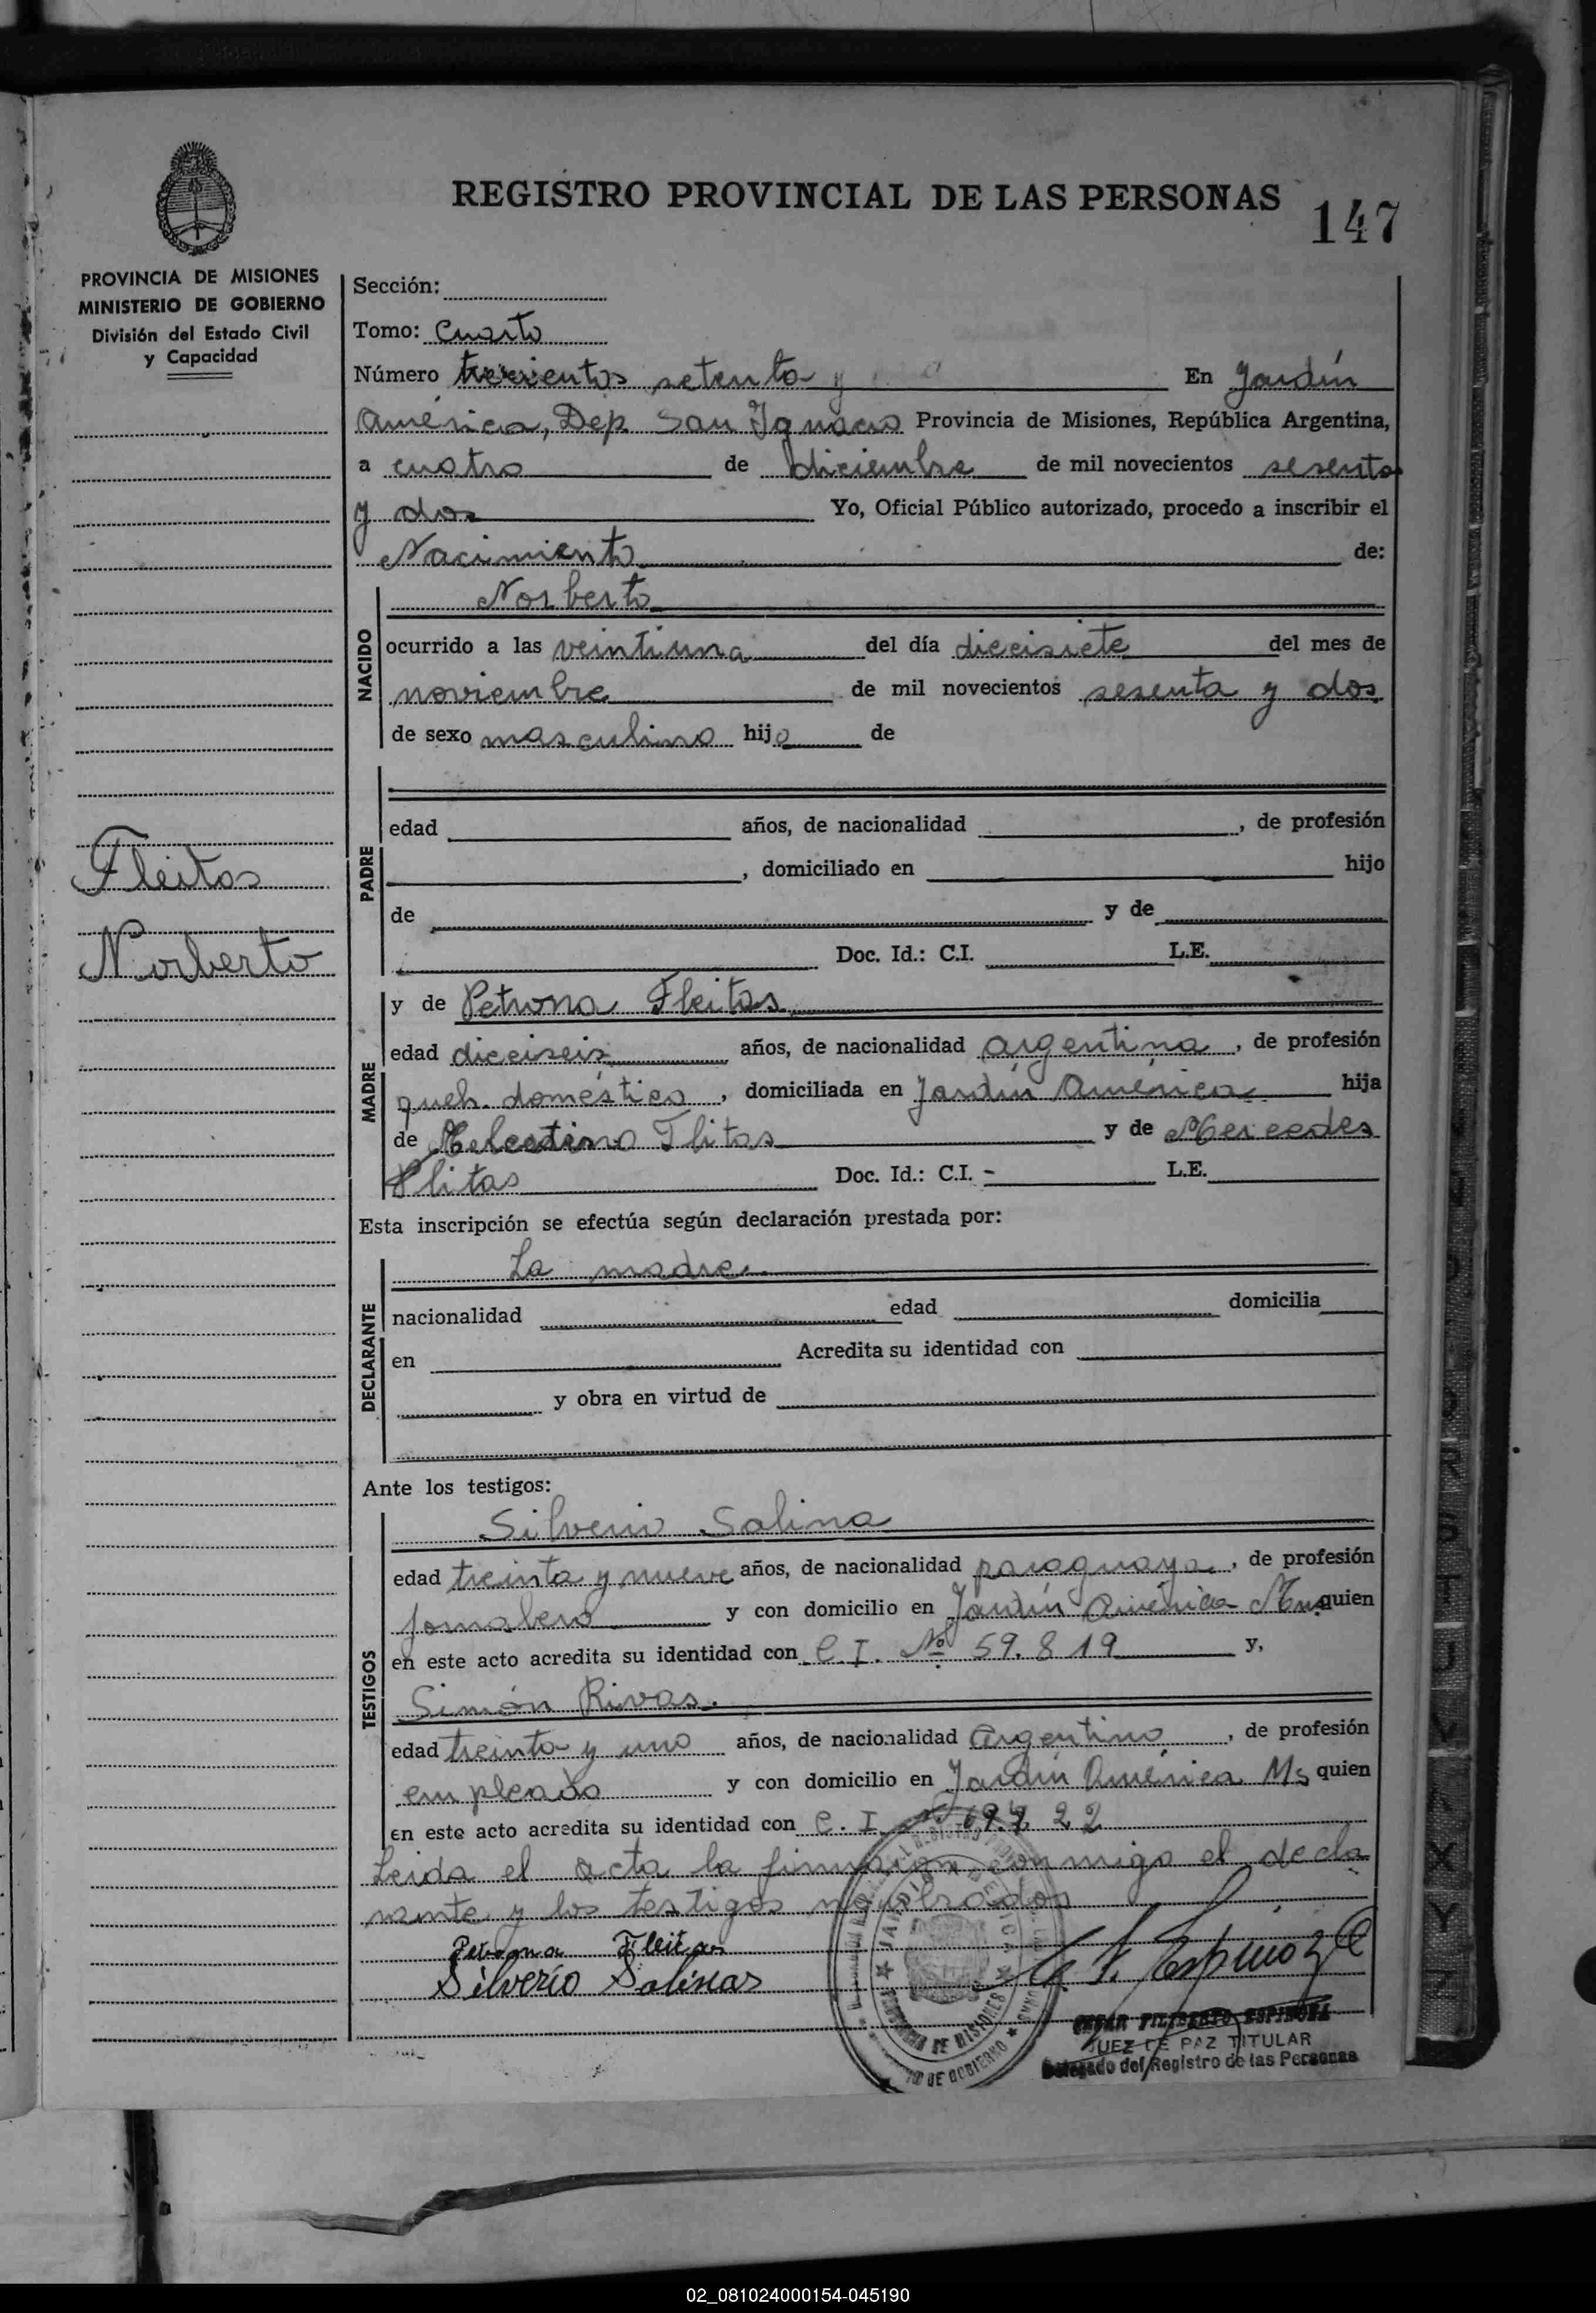 REGISTRO PROVINCIAL DE LAS PERSONAS
147
PROVINCIA DE MISIONES
MINISTERIO DE GOBIERNO
División del Estado Civil
y Capacidad
Fleitas
Norberto
Sección:
Tomo: Cuarto
Número trescientos setenta y En Jardín
América, Dep. San Ignacio Provincia de Misiones, República Argentina,
a cuatro de diciembre de mil novecientos sesenta
y dos Yo, Oficial Público autorizado, procedo a inscribir el
Nacimiento de:
NACIDO
Norberto
ocurrido a las veintiuna del día diecisiete del mes de
noviembre de mil novecientos sesenta y dos
de sexo masculino hijo de
PADRE
edad años, de nacionalidad , de profesión
, domiciliado en hijo
de y de
Doc. Id.: C.I. L.E.
MADRE
y de Petrona Fleitas
edad dieciseis años, de nacionalidad argentina, de profesión
queh. doméstico, domiciliada en Jardín América hija
de Flitas y de Mercedes
Flitas Doc. Id.: C.I. - L.E.
Esta inscripción se efectúa según declaración prestada por:
DECLARANTE
La madre
nacionalidad edad domicilia
en Acredita su identidad con
y obra en virtud de
Ante los testigos:
TESTIGOS
Silverio Salina
edad treinta y nueve años, de nacionalidad paraguaya, de profesión
jornalero y con domicilio en Jardín América quien
en este acto acredita su identidad con C.I. Nº 59.819 y,
Simón Rivas.
edad treinta y uno años, de nacionalidad Argentino, de profesión
empleado y con domicilio en Jardín América Ms quien
en este acto acredita su identidad con C.I.
Leida el acta la firmaron conmigo el decla
rante y los testigos nombrados
Petrona Fleitas
Silverio Salinas
C. F. Espinoza
JARDIN AMERICA
PROVINCIA DE MISIONES
CESAR FILIBERTO ESPINOZA
JUEZ DE PAZ TITULAR
Delegado del Registro de las Personas
02_081024000154-045190